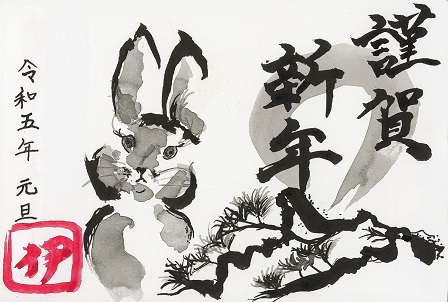 謹賀
新年
令和五年 元旦
伊